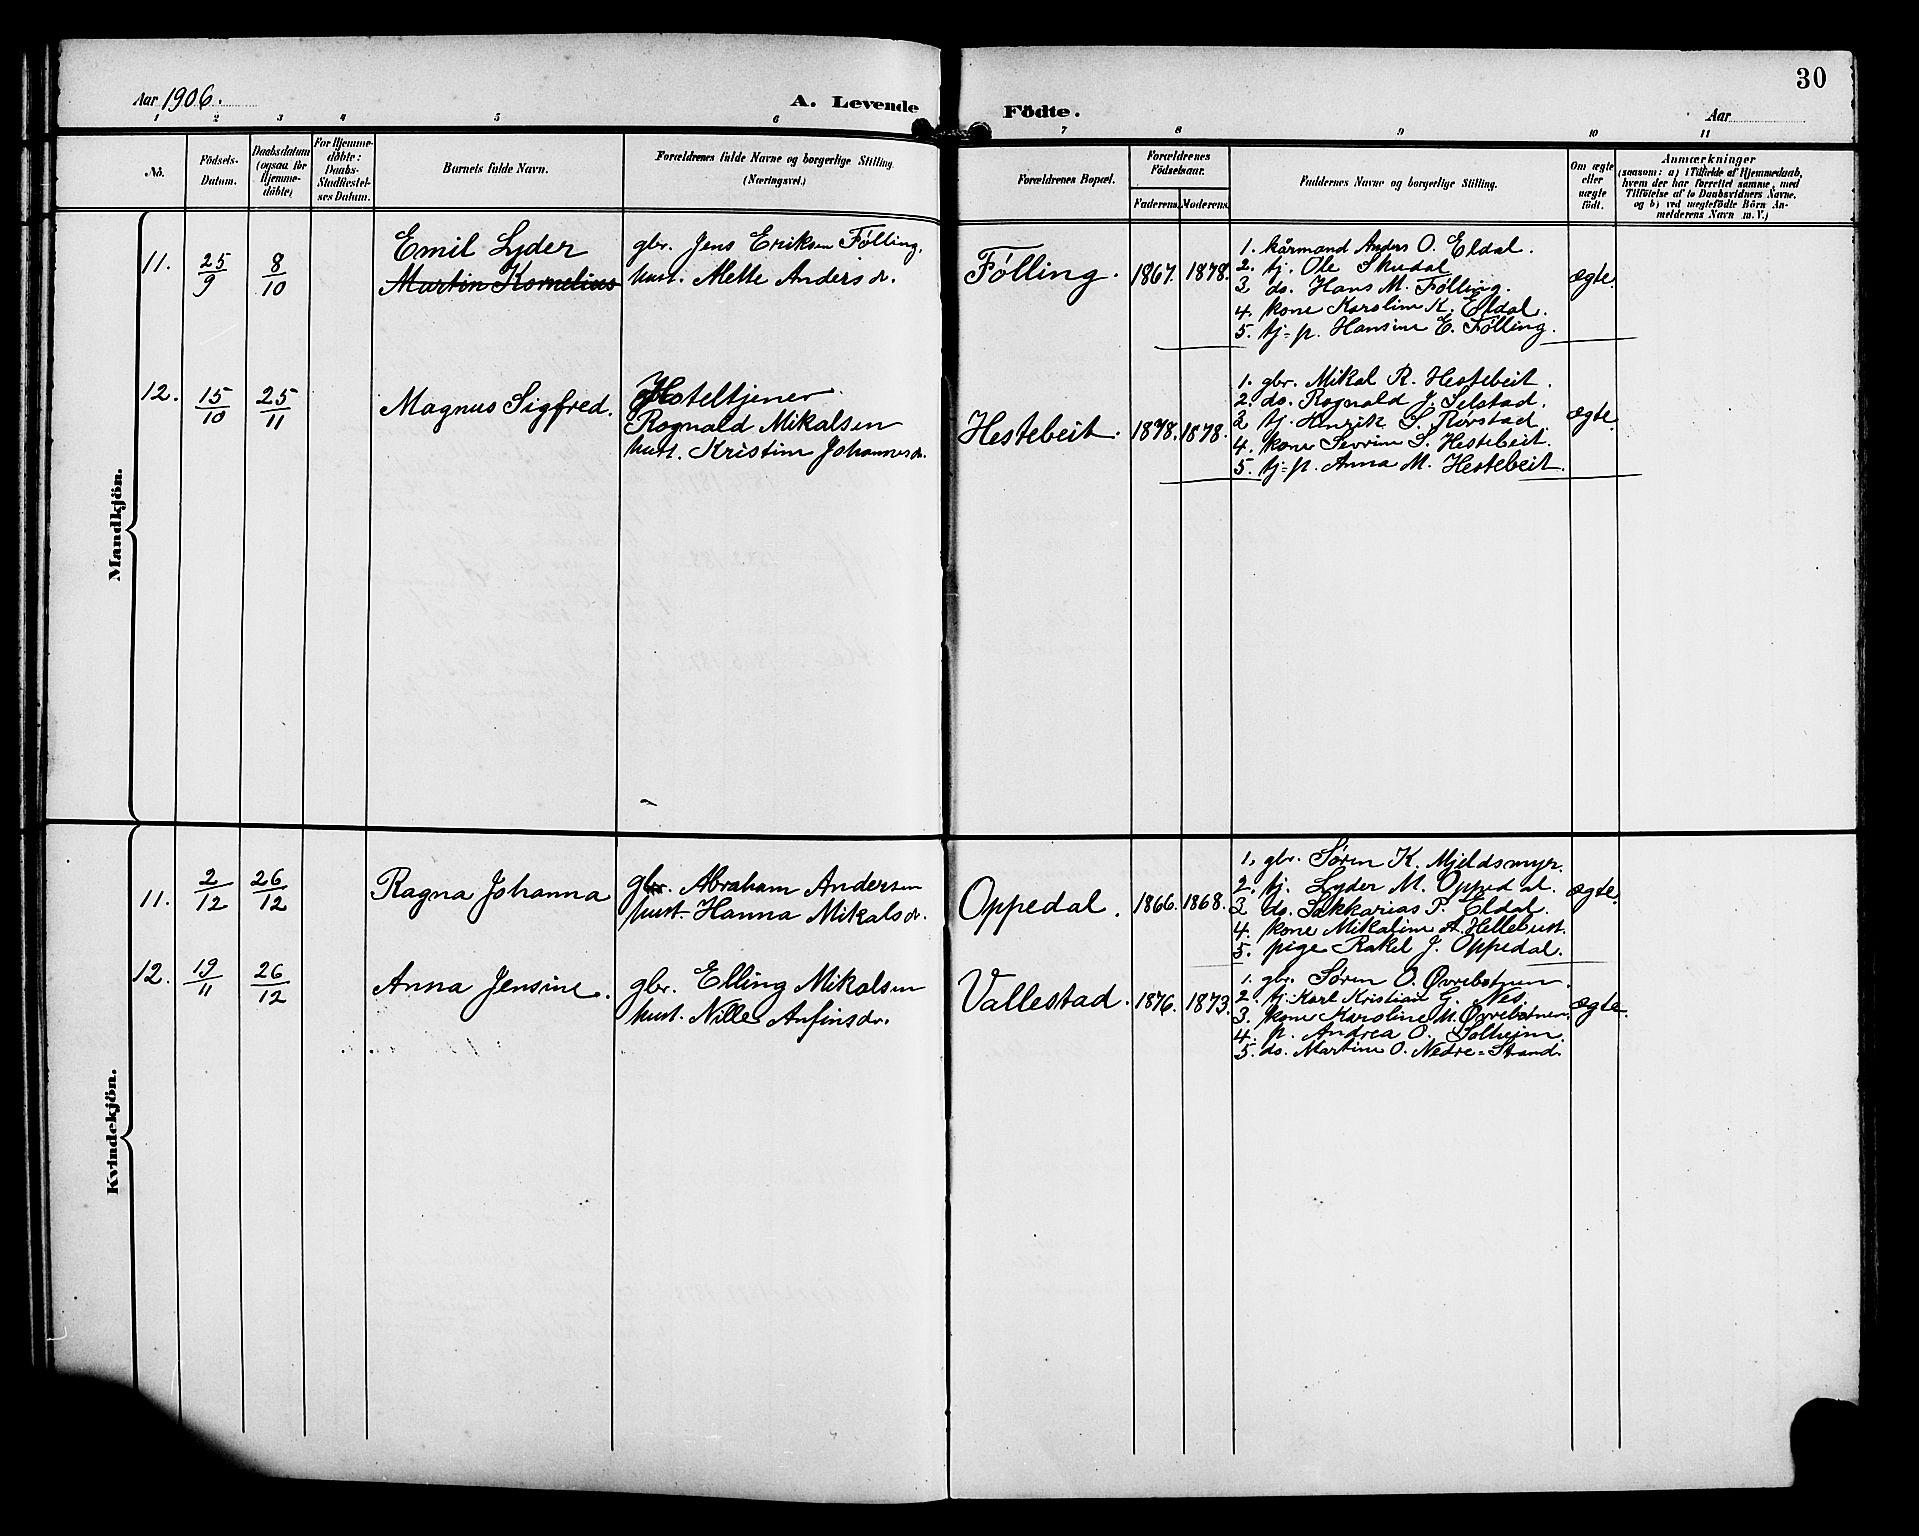 30
Aar 1906.
A. Levende Födte.
Aar
1 2 3 4 5 6 7 8 9 10 11
No.
Födsels-Datum.
Daabsdatum (ogsaa for Hjemmedöbte)
For Hjemmedöbte: Daabs-Stadfæstelses Datum.
Barnets fulde Navn.
Forældrenes fulde Navne og borgerlige Stilling. (Næringsvei.)
Forældrenes Bopæl.
Forældrenes Födselsaar.
Faderens. Moderens.
Faddernes Navne og borgerlige Stilling.
Om ægte eller uægte födt.
Anmærkninger
(saasom: a) i Tilfælde af Hjemmedaab,
hvem der har forrettet samme, med
Tilföielse af to Daabsvidners Navne,
og b) ved uægtefödte Börn An-
melderens Navn m. V.)
Mandkjön.
11. 25/9 8/10
Emil Lyder
Martin Kornelius
gbr. Jens Eriksen Følling.
hust. Mette Andersdr.
Følling. 1867. 1878.
1. kårmand Anders O. Eldal.
2. tj. Ole Skudal
3 do. Hans M. Følling.
4. kone Karoline K. Eldal.
5. tj-p. Hansine E. Følling.
ægte.
12. 15/10 25/11
Magnus Sigfred.
Hoteltjener
Rognald Mikalsen
hust. Kristine Johannesdr.
Hestebeit. 1878. 1878.
1. gbr. Mikal R. Hestebeit.
2. do. Rognald J. Selstad.
3 tj. Henrik S. Rørstad
4. kone Sevrine S. Hestebeit.
5. tj-p. Anna M. Hestebeit.
ægte.
Kvindekjön.
11. 2/12 26/12
Ragna Johanna
gbr. Abraham Andersen
hust. Hanna Mikalsdr.
Oppedal. 1866. 1868.
1. gbr. Søren K. Mjeldsmyr.
2. tj. Lyder M. Oppedal.
3 do. Sakkarias P. Eldal.
4. kone Mikaline A. Hellebust.
5. pige Rakel J. Oppedal.
ægte.
12. 19/11 26/12
Anna Jensine.
gbr. Elling Mikalsen
hust. Nille Anfinsdr.
Vallestad. 1876. 1873.
1. gbr. Søren O. Øvrebotnen.
2. tj. Karl Kristian G. Nes.
3. kone Karoline M. Øvrebotnen.
4. p. Andrea O. Solheim.
5. do. Martine O. Nedre-Strand.
ægte.